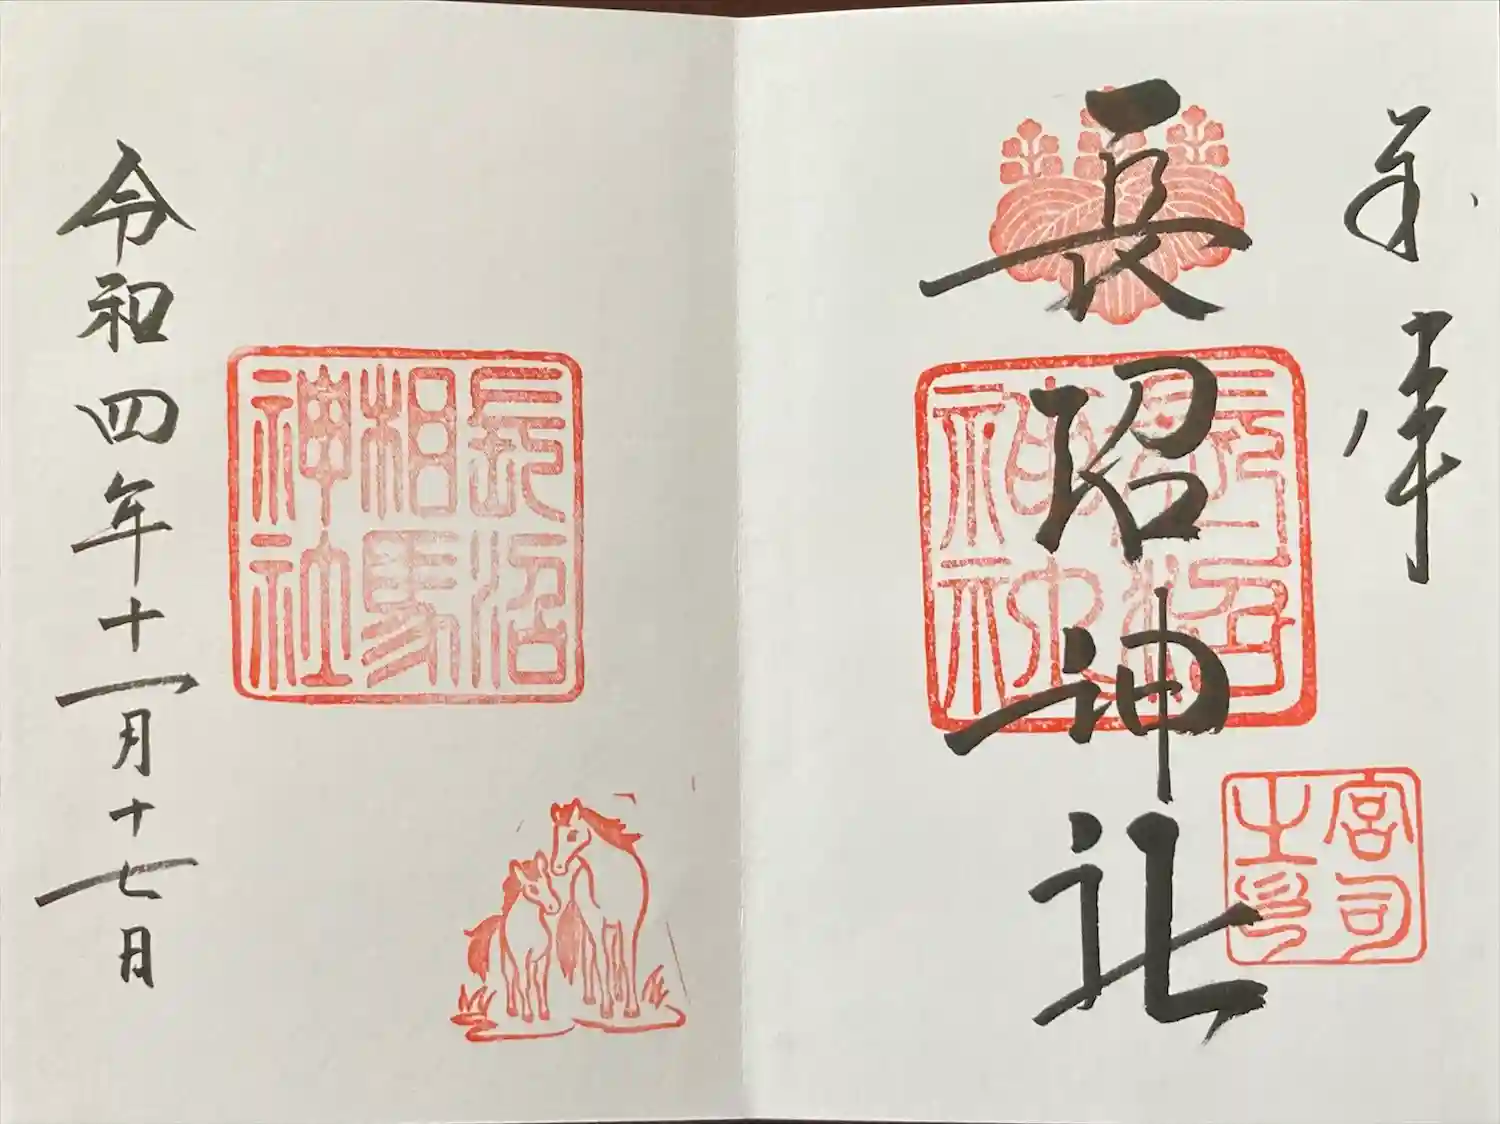 奉拝
長沼神社
長沼神社
宮司之印
長沼相馬神社
令和四年十一月十七日